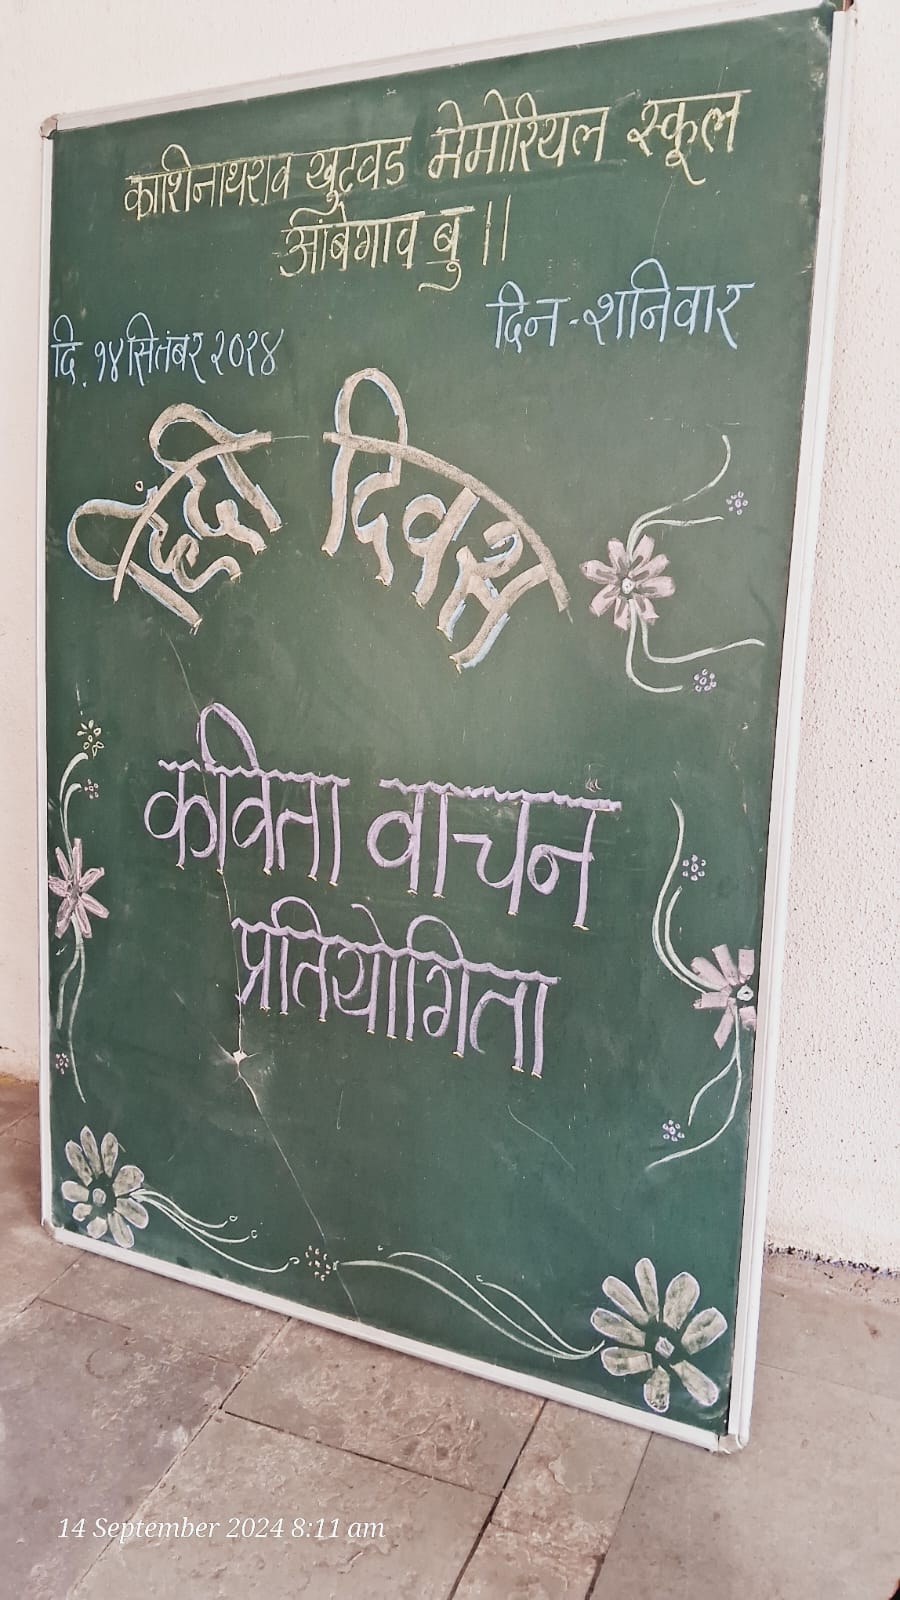 काशिनाथराव खुटवड मेमोरियल स्कूल
आंबेगाव बु ||
दिन - शनिवार
दि. १४ सितंबर २०२४
हिंदी दिवस
कविता वाचन
प्रतियोगिता
14 September 2024 8:11 am